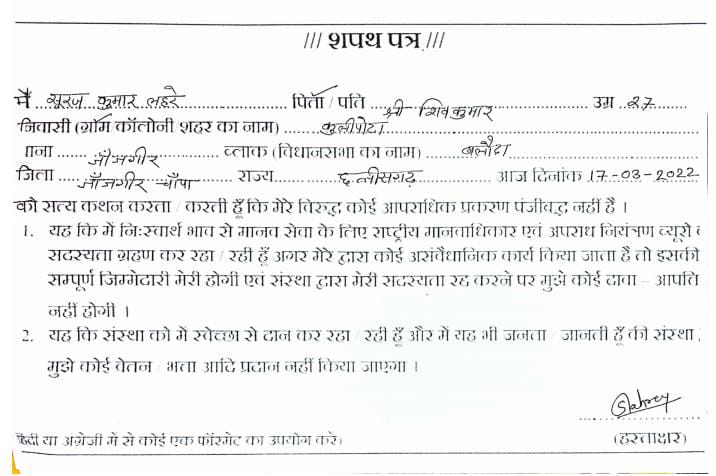 /// शपथ पत्र ///
मैं सूरज कुमार लहरे पिता / पति श्री शिव कुमार उम्र 27
निवासी (ग्रॉम कॉलोनी शहर का नाम) कुलीपोटा
थाना जाँजगीर ब्लाक (विधानसभा का नाम) बलौदा
जिला जाँजगीर चाँपा राज्य छत्तीसगढ़ आज दिनांक 17-03-2022
को सत्य कथन करता / करती हूँ कि मेरे विरुद्ध कोई आपराधिक प्रकरण पंजीवद्ध नहीं है ।
1. यह कि में निःस्वार्थ भाव से मानव सेवा के लिए राष्ट्रीय मानवाधिकार एवं अपराध नियंत्रण व्यूरो
सदस्यता ग्रहण कर रहा / रही हूँ अगर मेरे द्वारा कोई असंवैधानिक कार्य किया जाता है तो इसकी
सम्पूर्ण जिम्मेदारी मेरी होगी एवं संस्था द्वारा मेरी सदस्यता रद्द करने पर मुझे कोई दावा – आपति
नहीं होगी ।
2. यह कि संस्था को में स्वेच्छा से दान कर रहा / रही हूँ और में यह भी जनता / जानती हूँ की संस्था
मुझे कोई वेतन / भता आदि प्रदान नहीं किया जाएगा ।
(हस्ताक्षर)
हिंदी या अंग्रेजी में से कोई एक फॉरमेट का उपयोग करे)